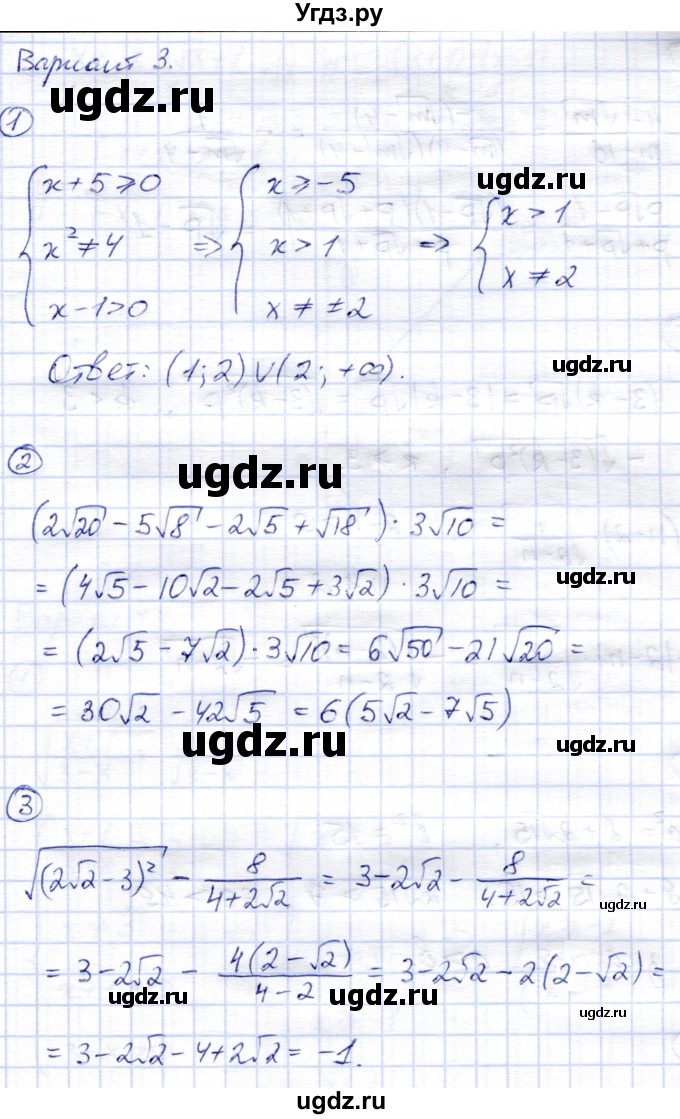 Угдз.ру
Вариант 3.
ugdz.ru
①
{ x + 5 ⩾ 0 ; x² ≠ 4 ; x - 1 > 0 => { x ⩾ -5 ; x > 1 ; x ≠ ±2 => { x > 1 ; x ≠ 2
ugdz.ru
Ответ: (1; 2) ∪ (2; +∞).
ugdz.ru
②
ugdz.ru
(2√20 - 5√8 - 2√5 + √18) · 3√10 =
= (4√5 - 10√2 - 2√5 + 3√2) · 3√10 =
ugdz.ru
= (2√5 - 7√2) · 3√10 = 6√50 - 21√20 =
= 30√2 - 42√5 = 6(5√2 - 7√5)
ugdz.ru
ugdz.ru
③
√(2√2 - 3)² - 8/(4+2√2) = 3 - 2√2 - 8/(4+2√2) =
ugdz.ru
= 3 - 2√2 - 4(2-√2)/(4-2) = 3 - 2√2 - 2(2-√2) =
ugdz.ru
ugdz.ru
ugdz.ru
= 3 - 2√2 - 4 + 2√2 = -1.
ugdz.ru